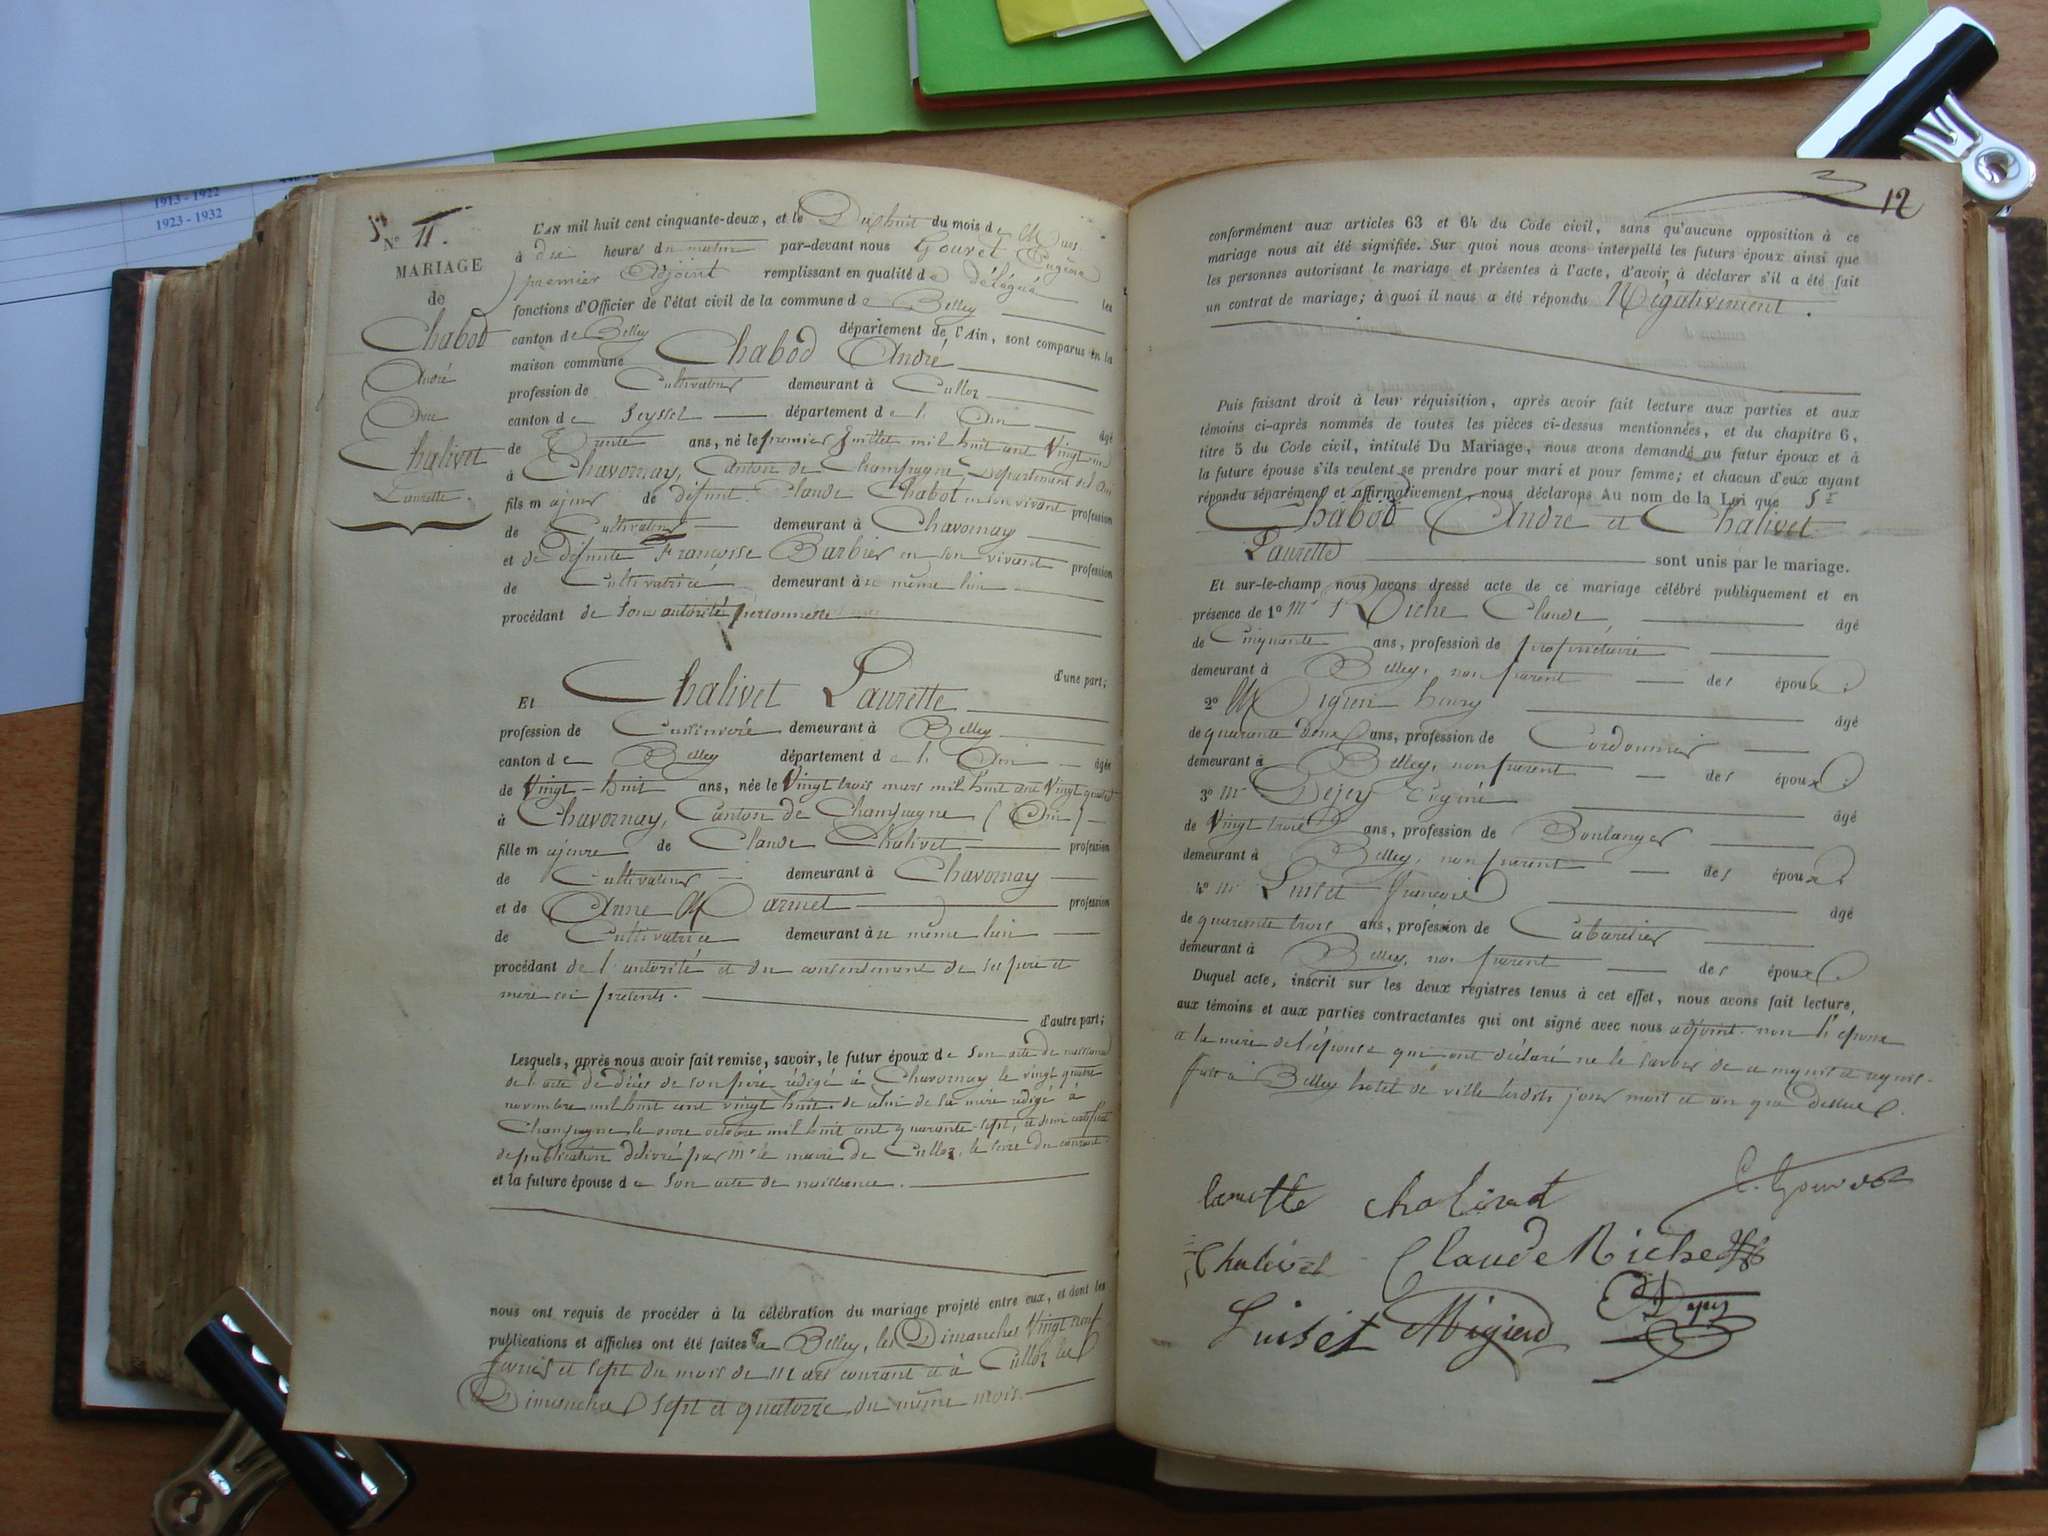 1913 - 1922
1923 - 1932
Nº 11.
MARIAGE
de
Chabod
André
Avec
Chalivet
Laurette.
L'AN mil huit cent cinquante-deux, et le Dix huit du mois de Mars
à dix heures du matin par-devant nous Gouvet Eugène
premier adjoint remplissant en qualité de délégué les
fonctions d'Officier de l'état civil de la commune de Belley
canton de Belley département de l'Ain, sont comparus en la
maison commune Chabod André
profession de Cultivateur demeurant à Culloz
canton de Seyssel département de l'Ain âgé
de Trente ans, né le premier Juillet mil huit cent Vingt un
à Chavornay, Canton de Champagne Département de l'Ain
fils majeur de défunt Claude Chabod en son vivant profession
de Cultivateur demeurant à Chavornay
et de défunte Françoise Barbier en son vivant profession
de Cultivatrice demeurant au même lieu
procédant de son autorité personnelle
d'une part;
Et Chalivet Laurette
profession de Cuisinière demeurant à Belley
canton de Belley département de l'Ain âgée
de Vingt-huit ans, née le Vingt trois mars mil huit cent Vingt quatre
à Chavornay, Canton de Champagne (Ain)
fille majeure de Claude Chalivet profession
de Cultivateur demeurant à Chavornay
et de Anne Marmet profession
de Cultivatrice demeurant au même lieu
procédant de l'autorité et du consentement de ses père et
mère ici présents.
d'autre part;
Lesquels, après nous avoir fait remise, savoir, le futur époux de son acte de naissance
de l'acte de décès de son père rédigé à Chavornay le vingt quatre
novembre mil huit cent vingt huit, de celui de sa mère rédigé à
Champagne le onze octobre mil huit cent quarante-sept, et d'un certificat
de publication délivré par Mr le maire de Culloz, le seize du courant
et la future épouse de son acte de naissance.
nous ont requis de procéder à la célébration du mariage projeté entre eux, et dont les
publications et affiches ont été faites à Belley, les Dimanches Vingt neuf
février et sept du mois de Mars courant et à Culloz les
Dimanches sept et quatorze du même mois.
12
conformément aux articles 63 et 64 du Code civil, sans qu'aucune opposition à ce
mariage nous ait été signifiée. Sur quoi nous avons interpellé les futurs époux ainsi que
les personnes autorisant le mariage et présentes à l'acte, d'avoir à déclarer s'il a été fait
un contrat de mariage; à quoi il nous a été répondu Négativement.
Puis faisant droit à leur réquisition, après avoir fait lecture aux parties et aux
témoins ci-après nommés de toutes les pièces ci-dessus mentionnées, et du chapitre 6,
titre 5 du Code civil, intitulé Du Mariage, nous avons demandé au futur époux et à
la future épouse s'ils veulent se prendre pour mari et pour femme; et chacun d'eux ayant
répondu séparément et affirmativement, nous déclarons Au nom de la Loi que Sr
Chabod André et Chalivet
Laurette sont unis par le mariage.
Et sur-le-champ nous avons dressé acte de ce mariage célébré publiquement et en
présence de 1º Mr Riche Claude, âgé
de Cinquante ans, profession de propriétaire
demeurant à Belley, non parent des époux.
2º Migieu henry âgé
de quarante deux ans, profession de Cordonnier
demeurant à Belley, non parent des époux.
3º Mr Dejey Eugène âgé
de Vingt trois ans, profession de Boulanger
demeurant à Belley, non parent des époux.
4º Mr Luiset françois âgé
de quarante trois ans, profession de Cabaretier
demeurant à Belley, non parent des époux.
Duquel acte, inscrit sur les deux registres tenus à cet effet, nous avons fait lecture,
aux témoins et aux parties contractantes qui ont signé avec nous adjoint non l'époux
et la mère de l'épouse qui ont déclaré ne le savoir de ce enquis et requis.
fait à Belley hotel de ville lesdits jour mois et an que dessus.
laurette chalivet
E. Gouvet
Chalivet Claude Riche
Luiset Migieu E Dejey